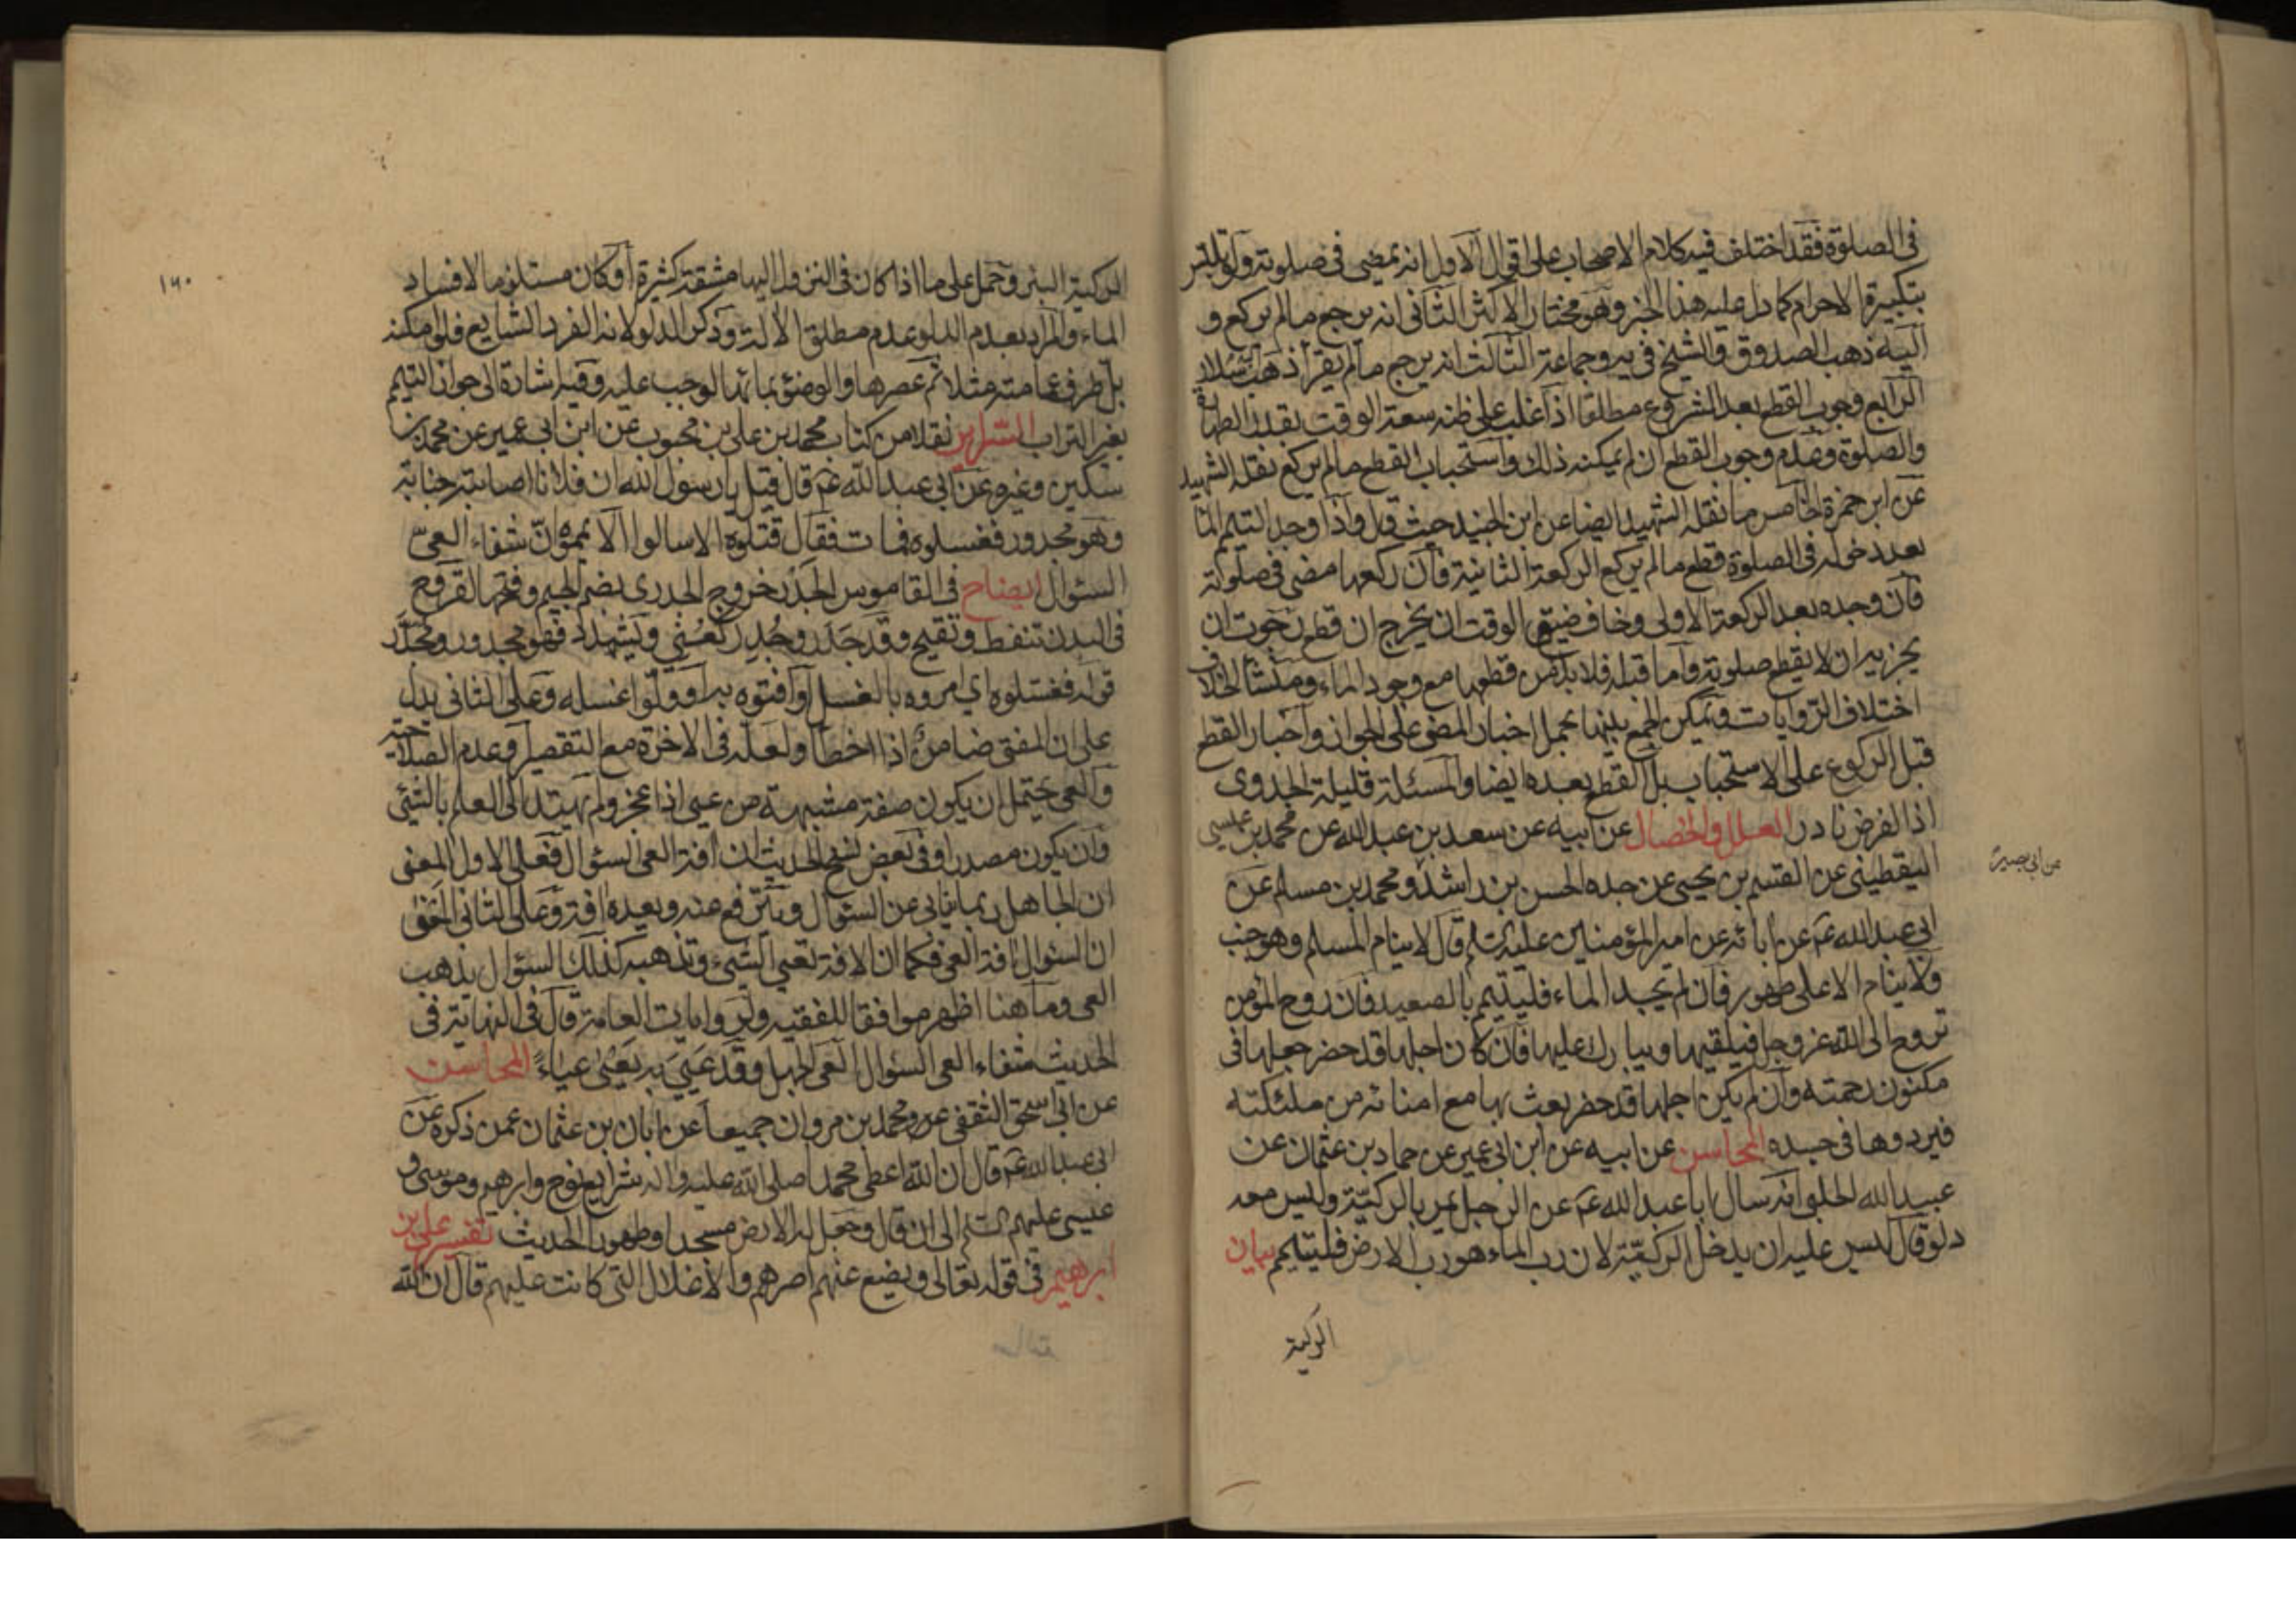 في الصلوة فقد اختلف فيه كلام الاصحاب على اقوال الاول انه يمضى في صلوته ولو تلبس
بتكبيرة الاحرام كما دل عليه هذا الخبر وهو مختار الاكثر الثاني انه يرجع ما لم يركع و
اليه ذهب الصدوق والشيخ في يه وجماعة الثالث انه يرجع ما لم يقرأ ذهب سلار
الرابع وجوب القطع بعد الشروع مطلقا اذا غلب على ظنه سعة الوقت بقدر الطهارة
والصلوة وعدم وجوب القطع ان لم يمكنه ذلك واستحباب القطع ما لم يركع نقله الشهيد
عن ابن حمزة الخامس ما نقله الشهيد ايضا عن ابن الجنيد حيث قال واذا وجد المتيمم الماء
بعد دخوله في الصلوة قطع ما لم يركع الركعة الثانية فان ركعها مضى في صلوته
فان وجده بعد الركعة الاولى وخاف ضيق الوقت ان يخرج ان قطع رجوت ان
يجزيه ان لا يقطع صلوته واما قبله فلا بد من قطعها مع وجود الماء ومنشأ الخلاف
اختلاف الروايات ويمكن الجمع بينها بحمل اخبار المضي على الجواز واخبار القطع
قبل الركوع على الاستحباب بل القطع بعده ايضا والمسئلة قليلة الجدوى
اذ الفرض نادر العلل والخصال عن ابيه عن سعد بن عبد الله عن محمد بن عيسى
اليقطيني عن القسم بن يحيى عن جده الحسن بن راشد ومحمد بن مسلم عن
من ابي بصير
ابي عبد الله عم عن ابائه عن امير المؤمنين عليه السلم قال لا ينام المسلم وهو جنب
ولا ينام الا على طهور فان لم يجد الماء فليتيمم بالصعيد فان روح المؤمن
تروح الى الله عز وجل فيلقيها ويبارك عليها فان كان اجلها قد حضر جعلها في
مكنون رحمته وان لم يكن اجلها قد حضر بعث بها مع امنائه من ملئكته
فيردوها في جسده المحاسن عن ابيه عن ابن ابي عمير عن حماد بن عثمان عن
عبيد الله الحلبي انه سال ابا عبد الله عم عن الرجل يمر بالركية وليس معه
دلو قال ليس عليه ان يدخل الركية لان رب الماء هو رب الارض فليتيمم بيان
الركية
١٦٠
الركية البئر وحمل على ما اذا كان في النزول اليها مشقة كثيرة او كان مستلزما لافساد
الماء والمراد بعدم الدلو عدم مطلق الالة وذكر الدلو لانه الفرد الشايع فلو امكنه
بل طرف عمامته مثلا ثم عصرها والوضوء بمائها لوجب عليه وفيه اشارة الى جواز التيمم
بغير التراب السرائر نقلا من كتاب محمد بن علي بن محبوب عن ابن ابي عمير عن محمد بن
سكين وغيره عن ابي عبد الله عم قال قيل يا رسول الله ان فلانا اصابته جنابة
وهو مجدور فغسلوه فمات فقال قتلوه الا سالوا الا يمموه ان شفاء العي
السئوال ايضاح في القاموس الجدر خروج الجدري بضم الجيم وفتحها القروح
في البدن تنفط وتقيح وقد جدر وجدر كعني ويشدد فهو مجدور ومجدر
قوله فغسلوه اي امروه بالغسل او افتوه به او ولوا غسله وعلى الثاني يدل
على ان المفتي ضامن اذا اخطأ ولعله في الاخرة مع التقصير وعدم الصلاحية
والعي يحتمل ان يكون صفة مشبهة من عيي اذا عجز ولم يهتد الى العلم بالشئ
وان يكون مصدرا وفي بعض نسخ الحديث ان افة العي السئوال فعلى الاول المعنى
ان الجاهل ربما يتابى عن السئوال ويترفع عنه ويعده افة وعلى الثاني المعنى
ان السئوال افة العي فكما ان الافة تفني الشيء وتذهبه كذلك السئوال يذهب
العي وما هنا اظهر موافقا للفقيه ولروايات العامة قال في النهاية في
الحديث شفاء العي السئوال العي الجهل وقد عيي به يعيى عياء المحاسن
عن ابي اسحق الثقفي عن محمد بن مروان جميعا عن ابان بن عثمان عمن ذكره عن
ابي عبد الله عم قال ان الله اعطى محمدا صلى الله عليه واله شرايع نوح وابرهيم وموسى و
عيسى عليهم السلم الى ان قال وجعل له الارض مسجدا وطهورا الحديث تفسير علي بن
ابرهيم في قوله تعالى ويضع عنهم اصرهم والاغلال التي كانت عليهم قال ان الله